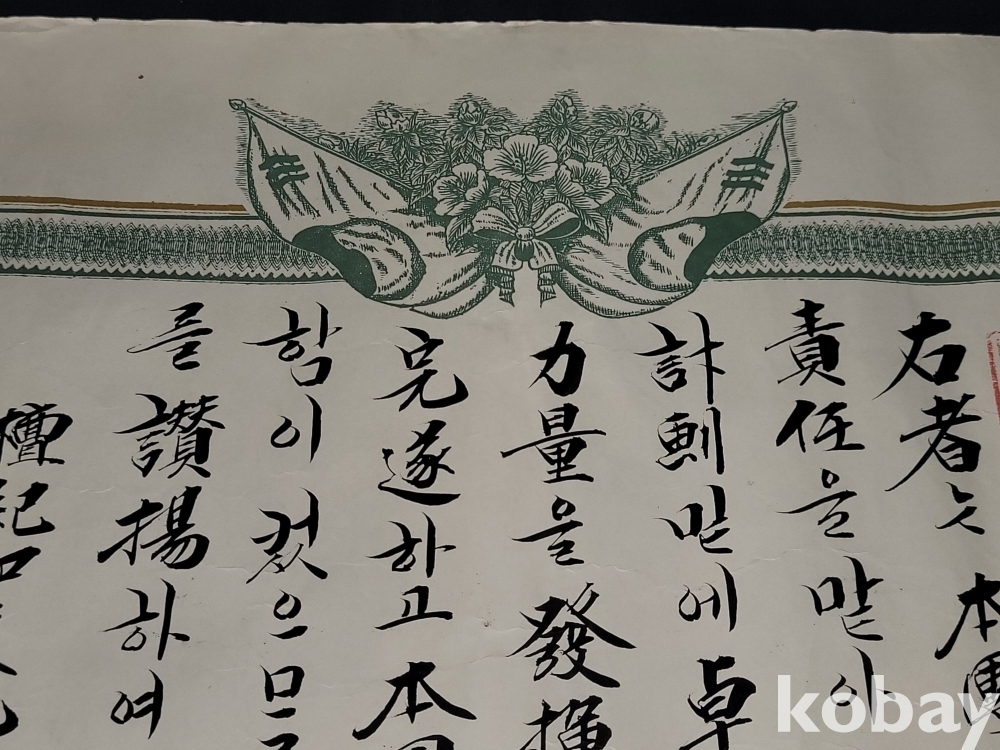 右者는 本團
責任을 맡아
計劃 밑에 卓
力量을 發揮
完遂하고 本
함이 컸으므
를 讚揚하여
檀紀四
kobay